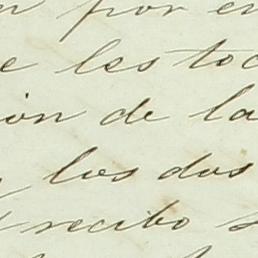 n por en
e les toc
ión de la
los dos
recibo